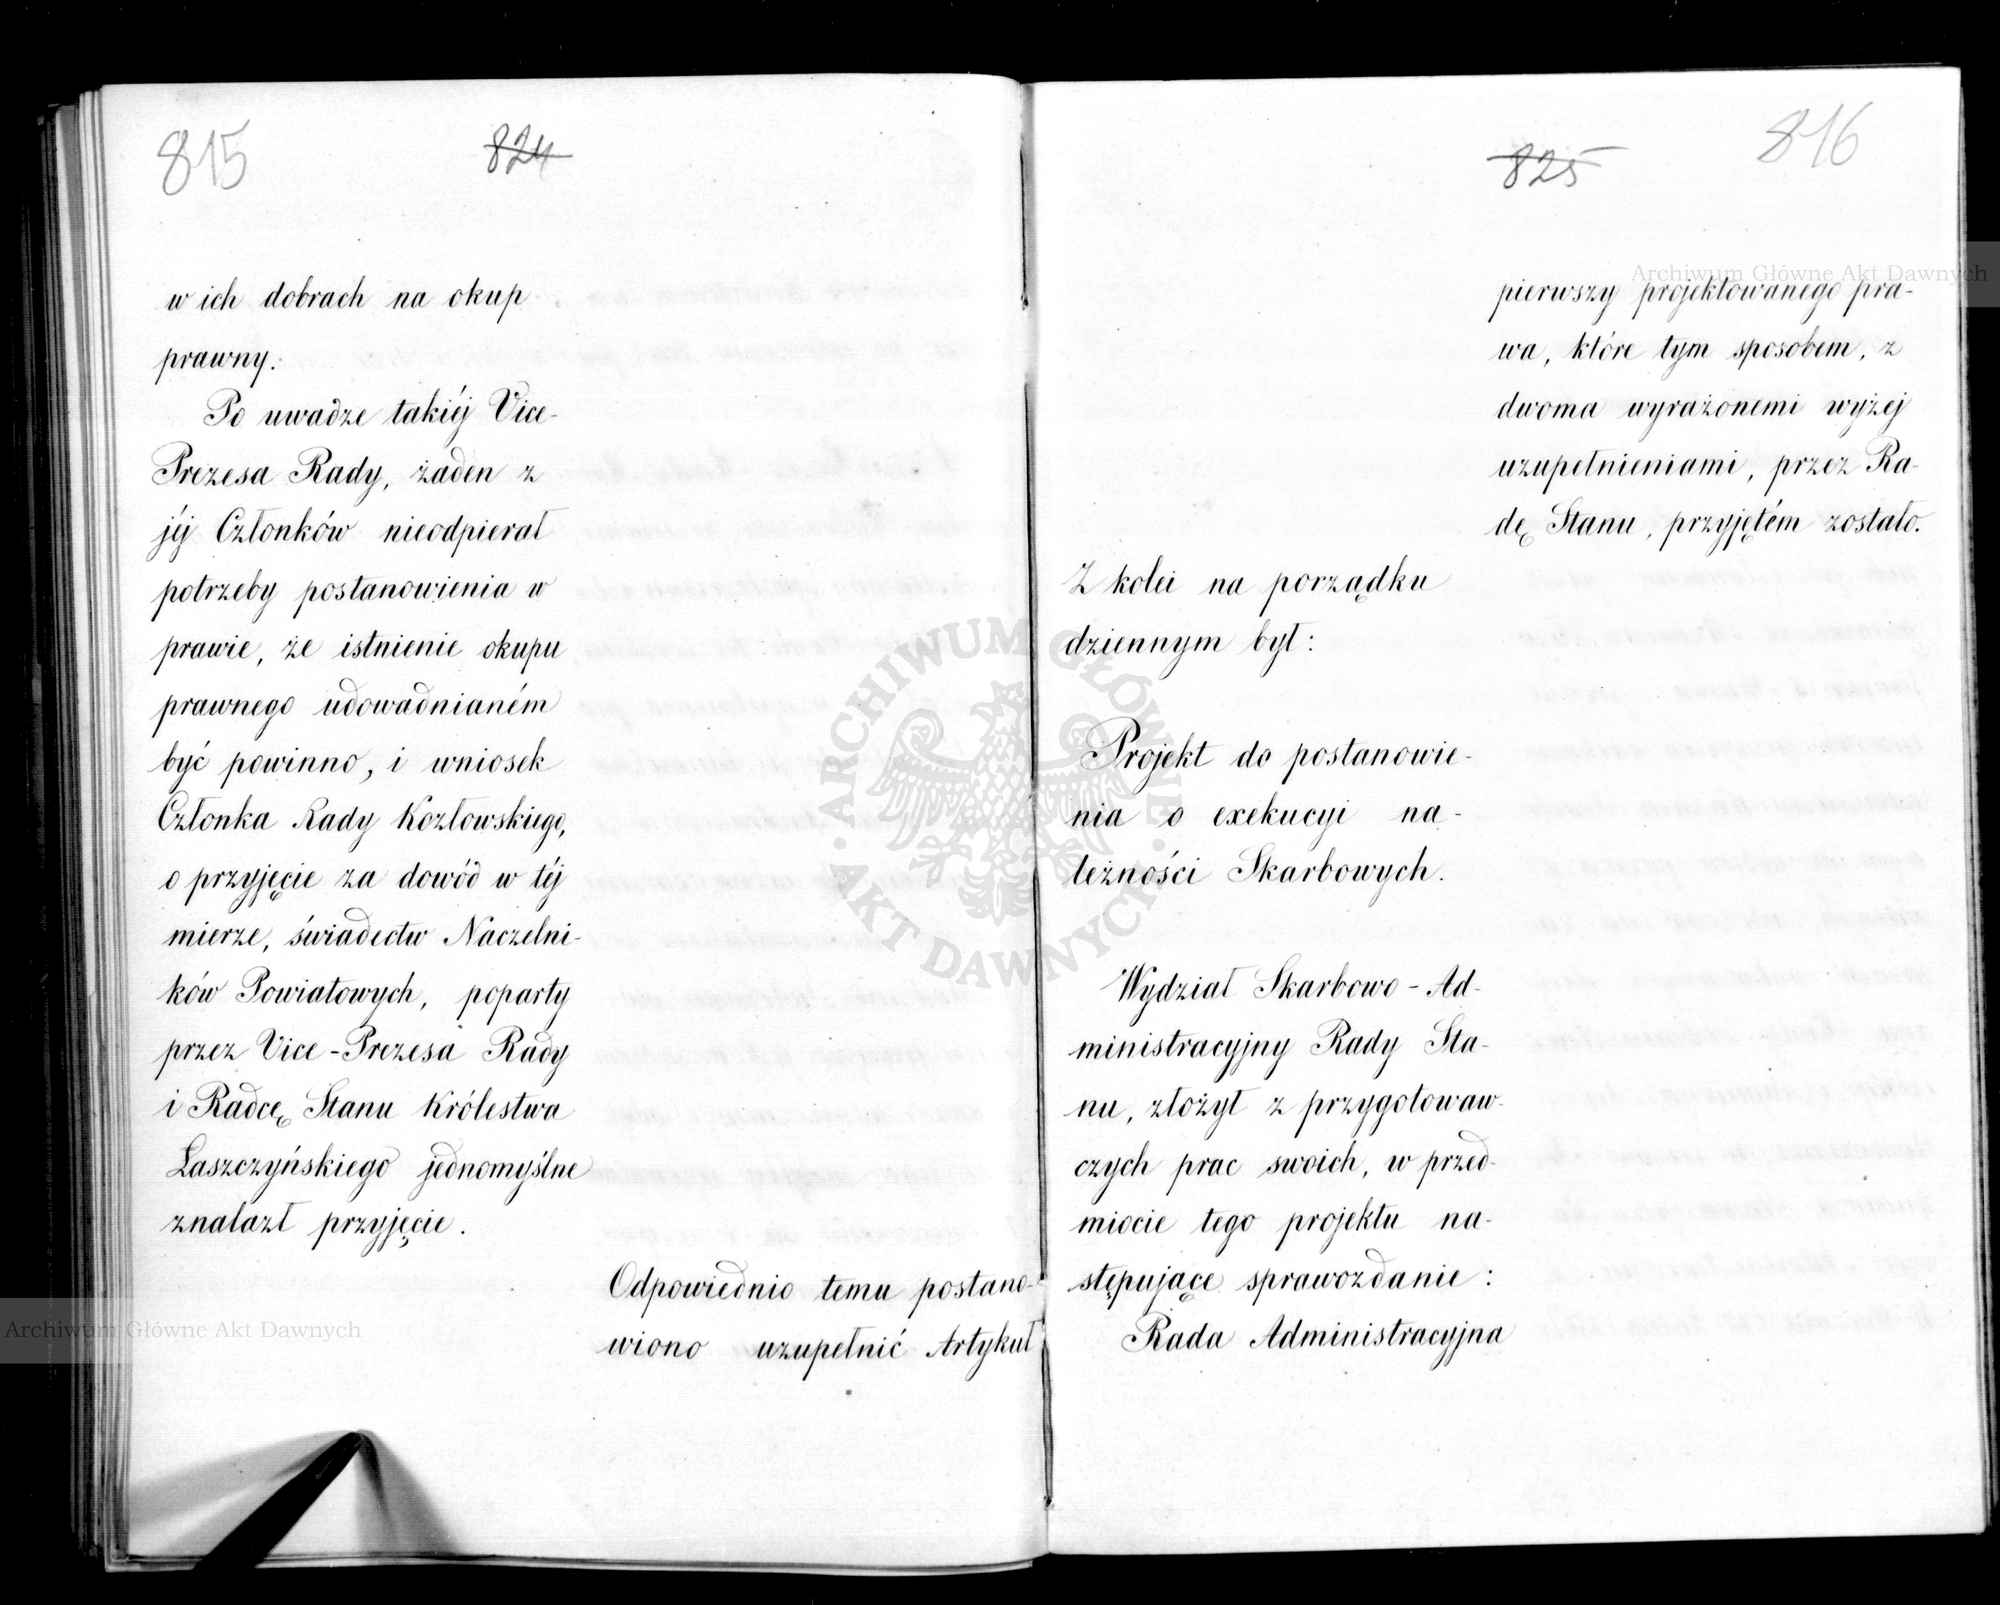 815
824
w ich dobrach na okup
prawny.
Po uwadze takiéj Vice-
Prezesa Rady, żaden z
jéj Członków nieodpierał
potrzeby postanowienia w
prawie, że istnienie okupu
prawnego udowadnianém
być powinno, i wniosek
Członka Rady Kozłowskiego,
o przyjęcie za dowód w téj
mierze, świadectw Naczelni-
ków Powiatowych, poparty
przez Vice-Prezesa Rady
i Radcę Stanu Królestwa
Łaszczyńskiego jednomyślne
znalazł przyjęcie.
Odpowiednio temu postano-
wiono uzupełnić Artykuł
825
816
pierwszy projektowanego pra-
wa, które tym sposobem, z
dwoma wyrażonemi wyżej
uzupełnieniami, przez Ra-
dę Stanu, przyjętém zostało.
Z kolei na porządku
dziennym był:
Projekt do postanowie-
nia o exekucyi na-
leżności Skarbowych.
Wydział Skarbowo-Ad-
ministracyjny Rady Sta-
nu, złożył z przygotowaw-
czych prac swoich, w przed-
miocie tego projektu na-
stępujące sprawozdanie:
Rada Administracyjna
Archiwum Główne Akt Dawnych
Archiwum Główne Akt Dawnych
ARCHIWUM GŁÓWNE · AKT DAWNYCH ·